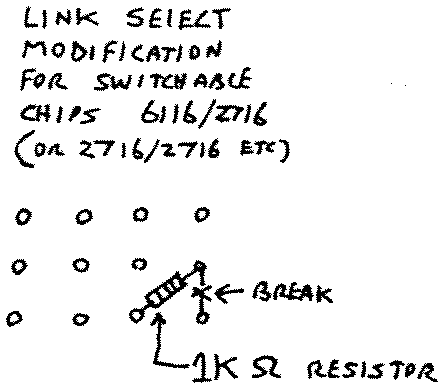 LINK SELECT
MODIFICATION
FOR SWITCHABLE
CHIPS 6116/2716
(OR 2716/2716 ETC)
BREAK
1K Ω RESISTOR